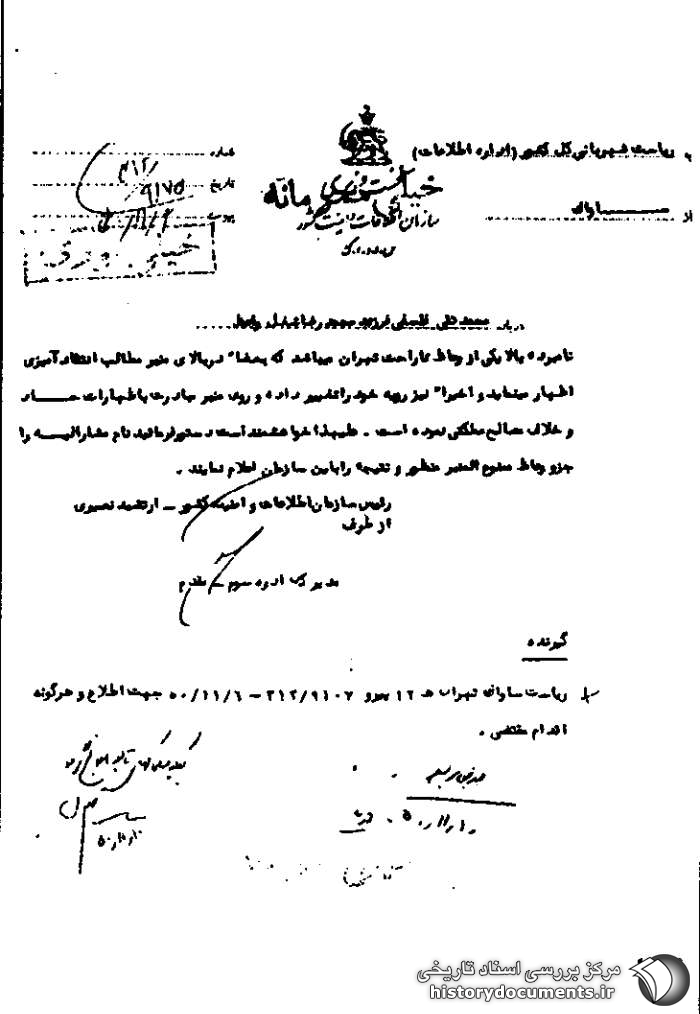 به ریاست شهربانی کل کشور (اداره اطلاعات)
از ساواک
نخست وزیری
خیلی محرمانه
سازمان اطلاعات و امنیت کشور
س.ا.و.ا.ک
شماره ۳۱۲/۹۱۷۵
تاریخ
پیوست
درباره محمدتقی فلسفی فرزند محمدرضا شغل واعظ
نامبرده بالا یکی از وعاظ ناراحت تهران میباشد که بعضاً در بالای منبر مطالب انتقاد آمیزی
اظهار مینماید و اخیراً نیز رویه خود را تغییر داده و روی منبر مبادرت باظهارات حاد
و خلاف مصالح مملکتی نموده است . علیهذا خواهشمند است دستور فرمائید نام مشارالیه را
جزو وعاظ ممنوع المنبر منظور و نتیجه را باین سازمان اعلام نمایند .
رئیس سازمان اطلاعات و امنیت کشور – ارتشبد نصیری
از طرف
مدیر کل اداره سوم – مقدم
گیرنده
ریاست ساواک تهران ه ۱۲ پیرو ۳۱۲/۹۱۰۷ – ۵۰/۱۱/۶ جهت اطلاع و هرگونه
اقدام مقتضی .
مرکز بررسی اسناد تاریخی
historydocuments.ir